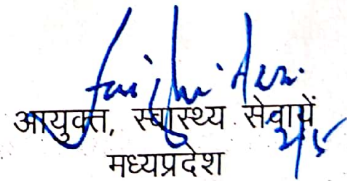 आयुक्त, स्वास्थ्य सेवायें
मध्यप्रदेश